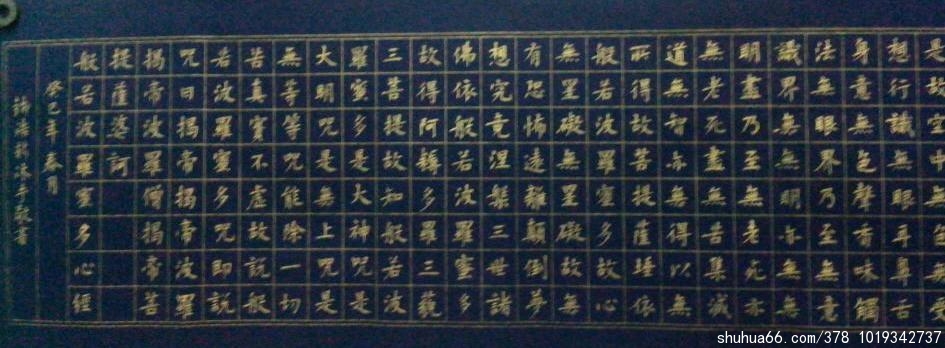 是故空中無色無受
想行識無眼耳鼻舌
身意無色聲香味觸
法無眼界乃至無意
識界無無明亦無無
明盡乃至無老死亦
無老死盡無苦集滅
道無智亦無得以無
所得故菩提薩埵依
般若波羅蜜多故心
無罣礙無罣礙故無
有恐怖遠離顛倒夢
想究竟涅槃三世諸
佛依般若波羅蜜多
故得阿耨多羅三藐
三菩提故知般若波
羅蜜多是大神咒是
大明咒是無上咒是
無等等咒能除一切
苦真實不虛故說般
若波羅蜜多咒即說
咒曰揭帝揭帝波羅
揭帝波羅僧揭帝菩
提薩婆訶
般若波羅蜜多心經
癸巳年春月
敬書
shuhua66.com/378 1019342737